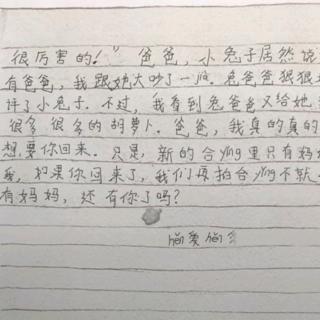 很厉害的!"爸爸,小兔子居然说
有爸爸,我跟她大吵了一jia.兔爸爸狠狠
评了小兔子.不过,我看到兔爸爸又给她
很多很多的胡萝卜.爸爸,我真的真的
想要你回来.只是,新的合ying里只有妈
我,如果你回来了,我们再拍合ying不就
有妈妈,还有你了吗?